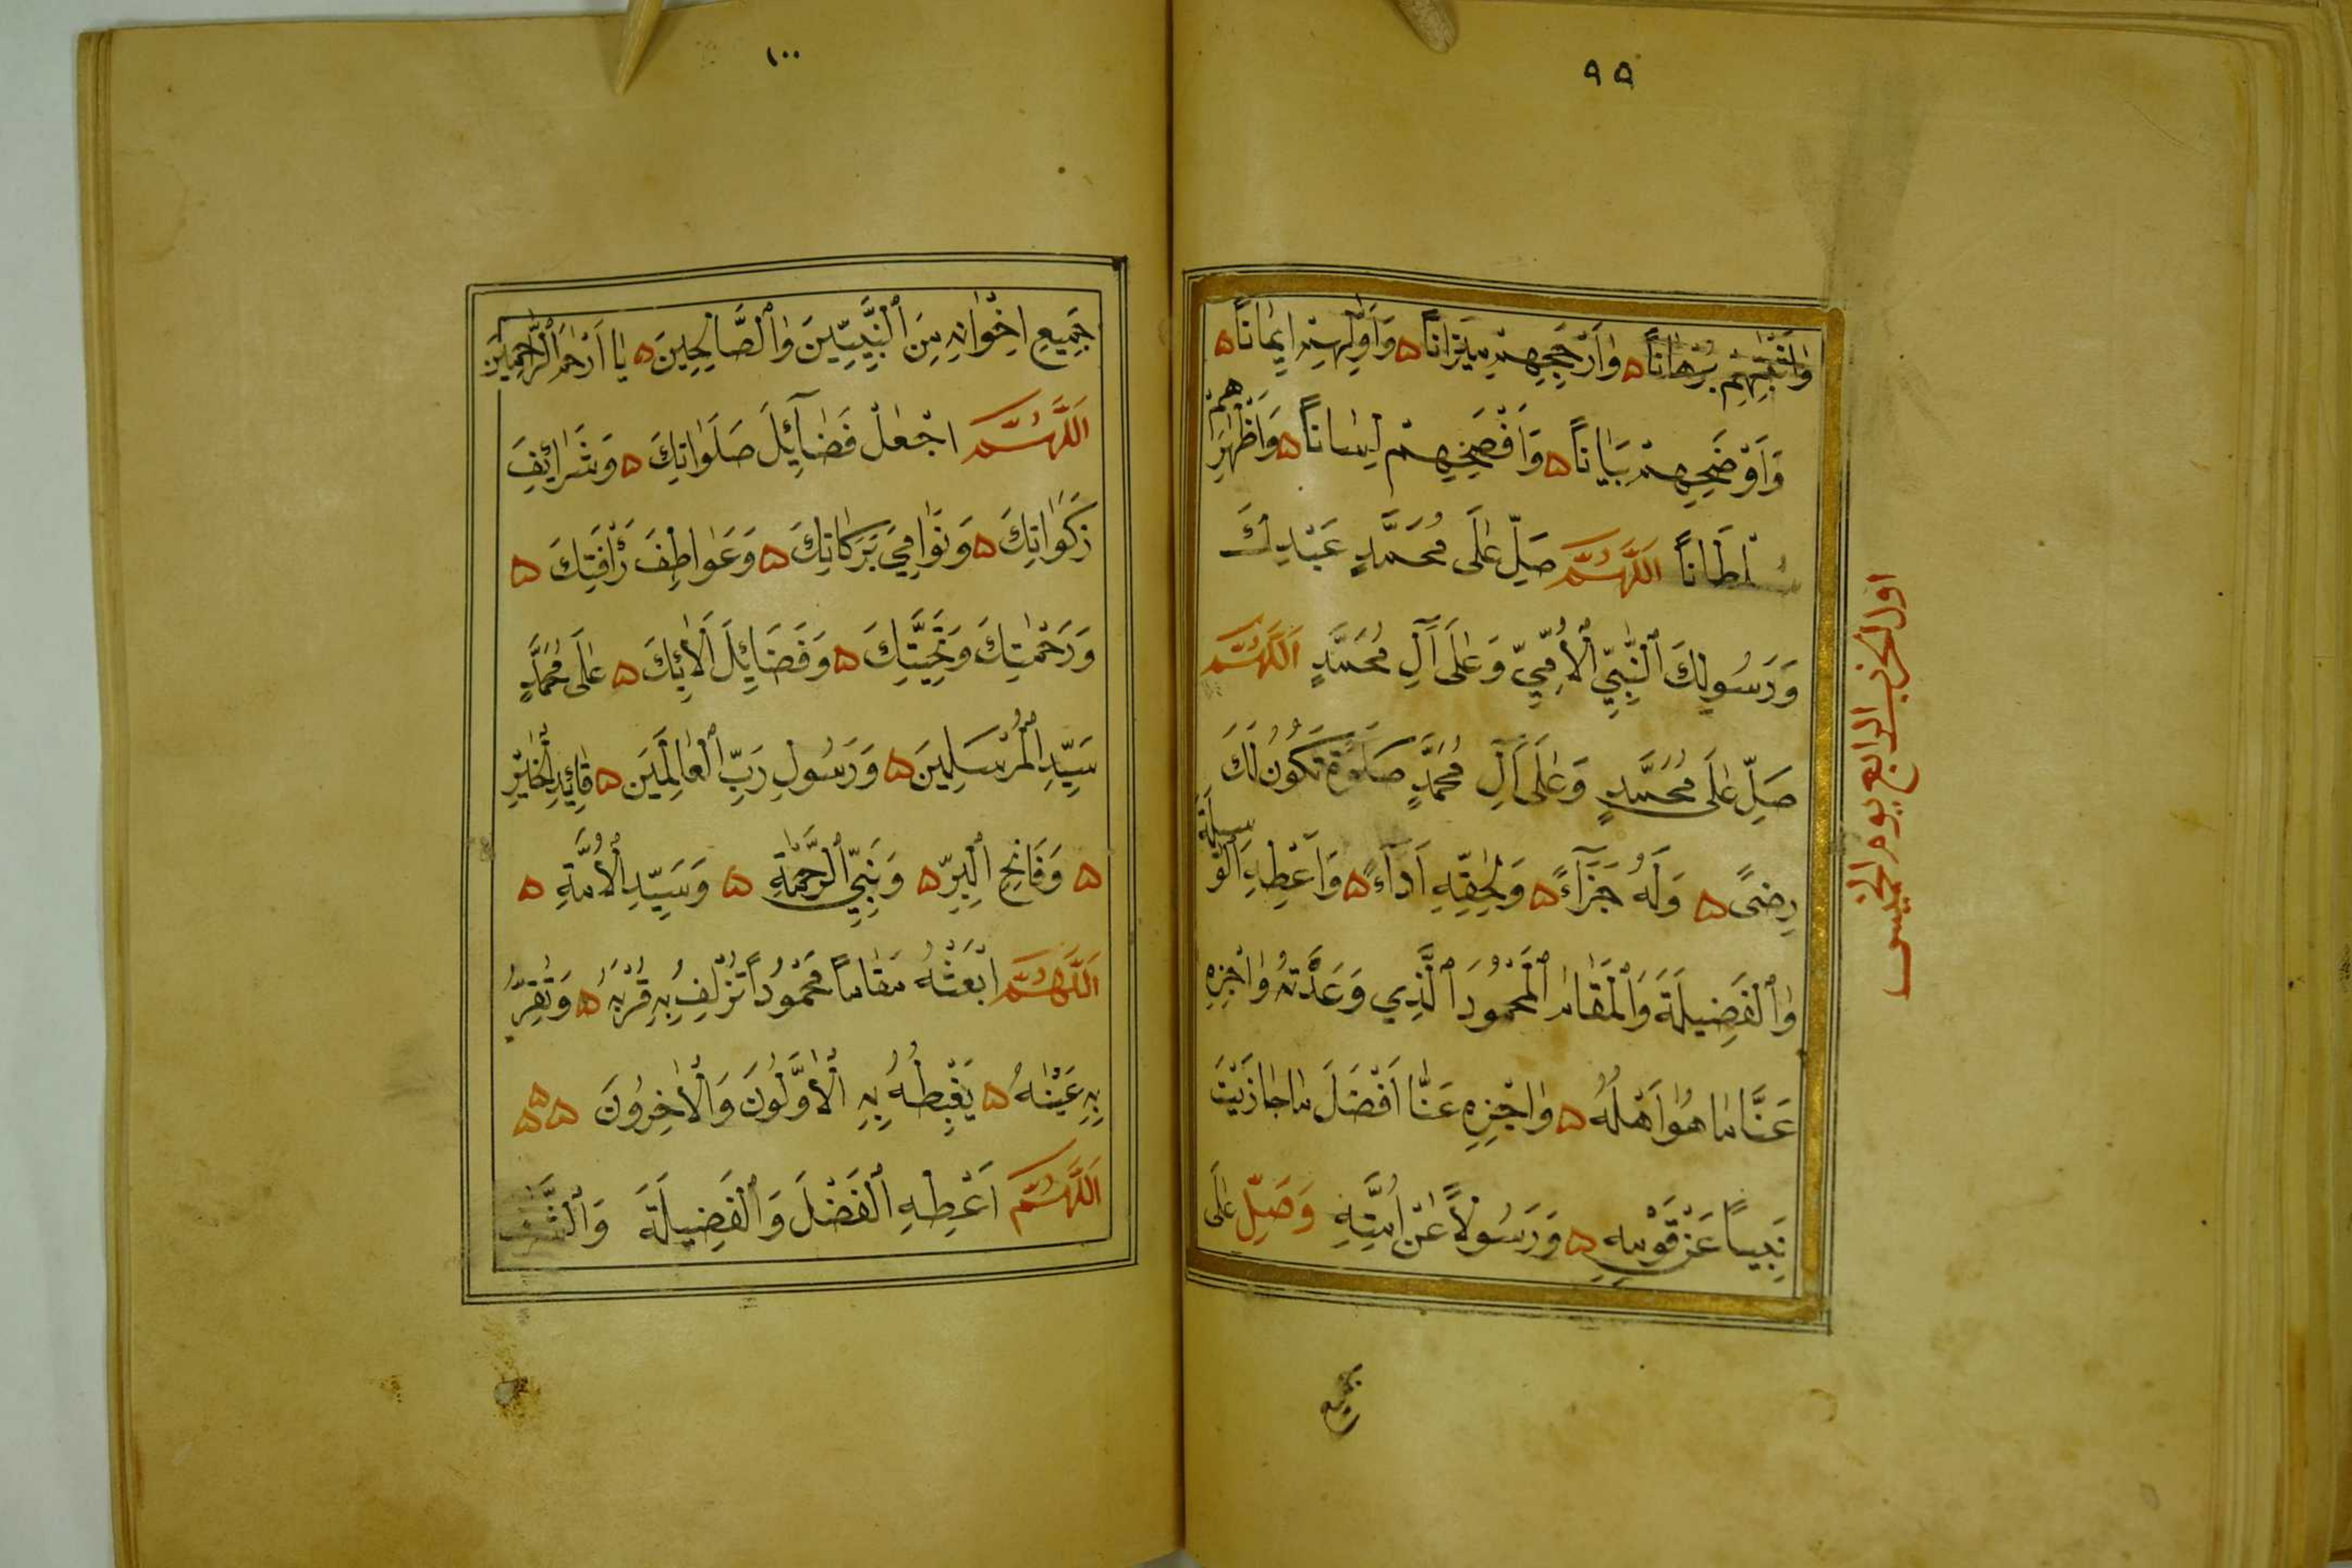 ٩٩
وَاَثْبَتِهِمْ بُرْهَانًا ۵ وَاَرْجَحِهِمْ مِيزَانًا ۵ وَاَوَّلِهِمْ اِيمَانًا ۵
وَاَوْضَحِهِمْ بَيَانًا ۵ وَاَفْصَحِهِمْ لِسَانًا ۵ وَاَظْهَرِهِمْ
سُلْطَانًا اَللّٰهُمَّ صَلِّ عَلَى مُحَمَّدٍ عَبْدِكَ
وَرَسُولِكَ ٱلنَّبِيِّ ٱلْأُمِّيِّ وَعَلَى آلِ مُحَمَّدٍ اَللّٰهُمَّ
صَلِّ عَلَى مُحَمَّدٍ وَعَلَى آلِ مُحَمَّدٍ صَلٰوةً تَكُونُ لَكَ
رِضىً ۵ وَلَهُ جَزَآءً ۵ وَلِحَقِّهِ اَدَآءً ۵ وَاَعْطِهِ الْوَسِيلَةَ
وَٱلْفَضِيلَةَ وَٱلْمَقَامَ ٱلْمَحْمُودَ ٱلَّذِي وَعَدْتَهُ وَاجْزِهِ
عَنَّا مَا هُوَ اَهْلُهُ ۵ وَاجْزِهِ عَنَّا اَفْضَلَ مَا جَازَيْتَ
نَبِيًّا عَنْ قَوْمِهِ ۵ وَرَسُولاً عَنْ اُمَّتِهِ وَصَلِّ عَلَى
جميع
اول الحزب الرابع يوم الخميس
١٠٠
جَمِيعِ اِخْوَانِهِ مِنَ ٱلنَّبِيِّينَ وَٱلصَّالِحِينَ ۵ يَا اَرْحَمَ ٱلرَّاحِمِينَ
اَللّٰهُمَّ اجْعَلْ فَضَآئِلَ صَلَوَاتِكَ ۵ وَشَرَائِفَ
زَكَوَاتِكَ ۵ وَنَوَامِيَ بَرَكَاتِكَ ۵ وَعَوَاطِفَ رَأْفَتِكَ ۵
وَرَحْمَتِكَ وَتَحِيَّتِكَ ۵ وَفَضَائِلَ اَلَائِكَ ۵ عَلَى مُحَمَّدٍ
سَيِّدِ الْمُرْسَلِينَ ۵ وَرَسُولِ رَبِّ ٱلْعَالَمِينَ ۵ قَائِدِ الْخَيْرِ
۵ وَفَاتِحِ ٱلْبِرِّ ۵ وَنَبِيِّ ٱلرَّحْمَةِ ۵ وَسَيِّدِ ٱلْأُمَّةِ ۵
اَللّٰهُمَّ ابْعَثْهُ مَقَامًا مَحْمُودًا تُزْلِفُ بِهِ قُرْبَهُ ۵ وَتُقِرُّ
بِهِ عَيْنَهُ ۵ يَغْبِطُهُ بِهِ ٱلْأَوَّلُونَ وَٱلْاٰخِرُونَ ۵۵۵
اَللّٰهُمَّ اَعْطِهِ ٱلْفَضْلَ وَٱلْفَضِيلَةَ وَٱلشَّرَفَ